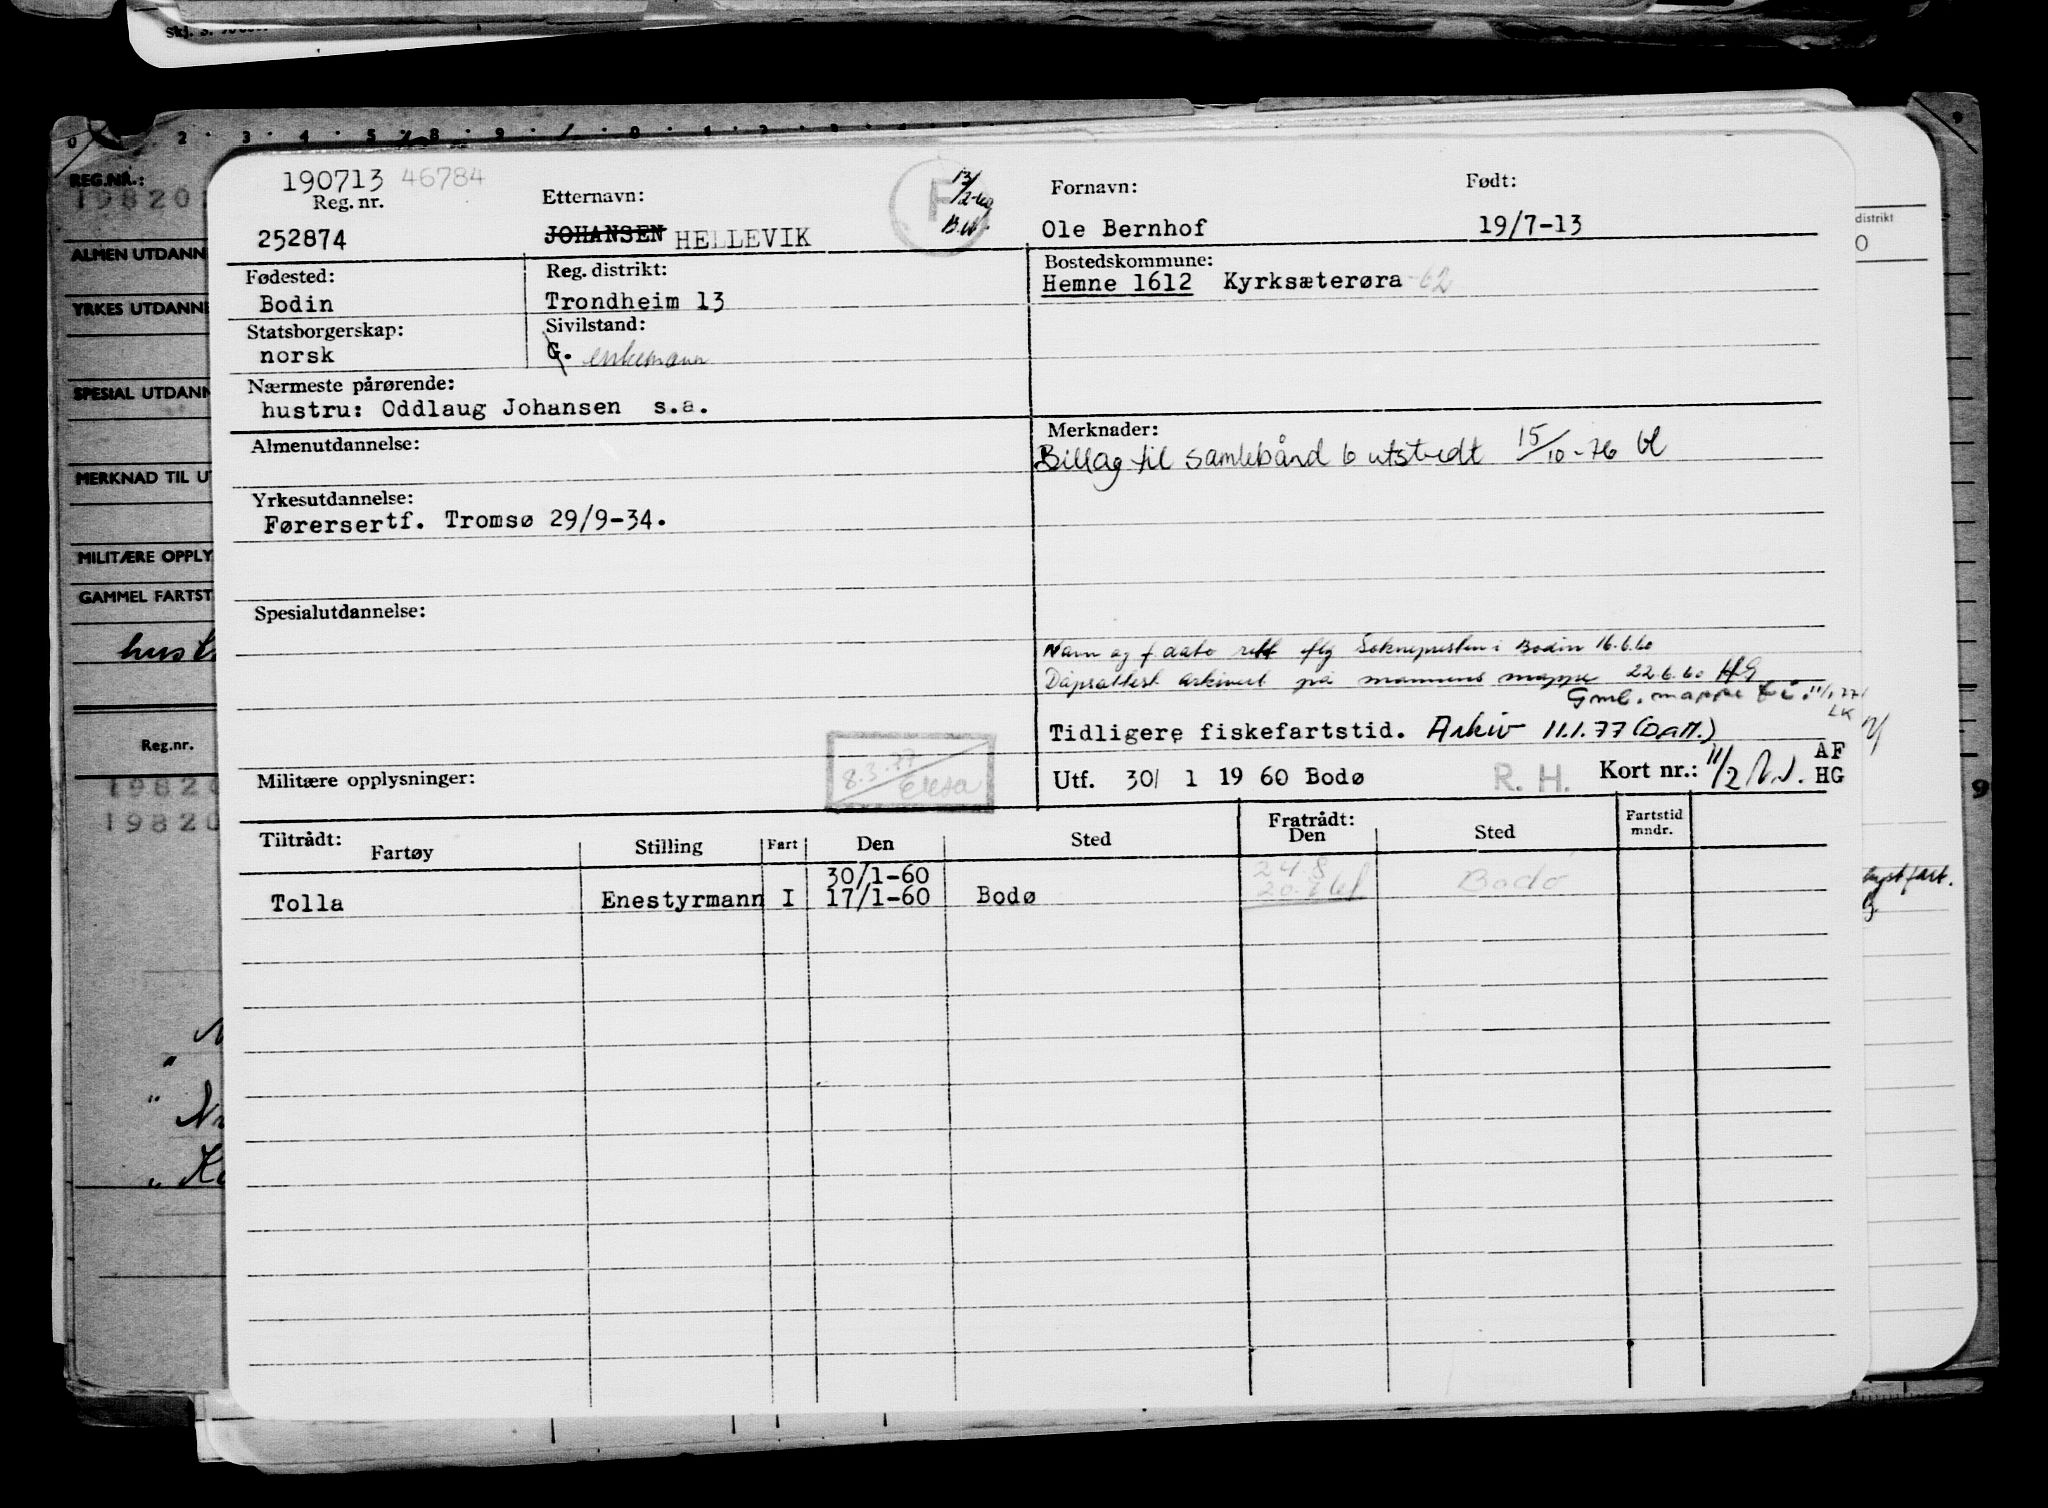 0 2 3 4 5 8 9
REG.NR.:
19820
ALMEN UTDANN
YRKES UTDANNE
SPESIAL UTDANN
MERKNAD TIL U
MILITÆRE OPPLY
GAMMEL FARTST
Reg.nr.
19820
19820
distrikt
190713 46784
Reg. nr.
252874
Etternavn:
JOHANSEN HELLEVIK
F
Fornavn:
Ole Bernhof
Født:
19/7-13
Fødested:
Bodin
Reg. distrikt:
Trondheim 13
Bostedskommune:
Hemne 1612 Kyrksæterøra -62
Statsborgerskap:
norsk
Sivilstand:
G. enkemann
Nærmeste pårørende:
hustru: Oddlaug Johansen s.a.
Almenutdannelse:
Merknader:
Billag til samlebånd 6 utstedt 15/10-76
Yrkesutdannelse:
Førersertf. Tromsø 29/9-34.
Spesialutdannelse:
Navn og f.dato rett iflg Soknepresten i Bodin 16.6.60
Dåpsattest arkivert på mannens mappe 22.6.60 HG
Gml. mappe
LK
Tidligere fiskefartstid. Arkiv 11.1.77 (Datt.)
Militære opplysninger:
8.3.77
Utf. 30/ 1 19 60 Bodø
R. H.
Kort nr.: 11/2
AF
HG
Tiltrådt:
Fartøy
Stilling
Fart
Den
Sted
Fratrådt:
Den
Sted
Fartstid
mndr.
30/1-60
Tolla Enestyrmann I 17/1-60 Bodø Bodø